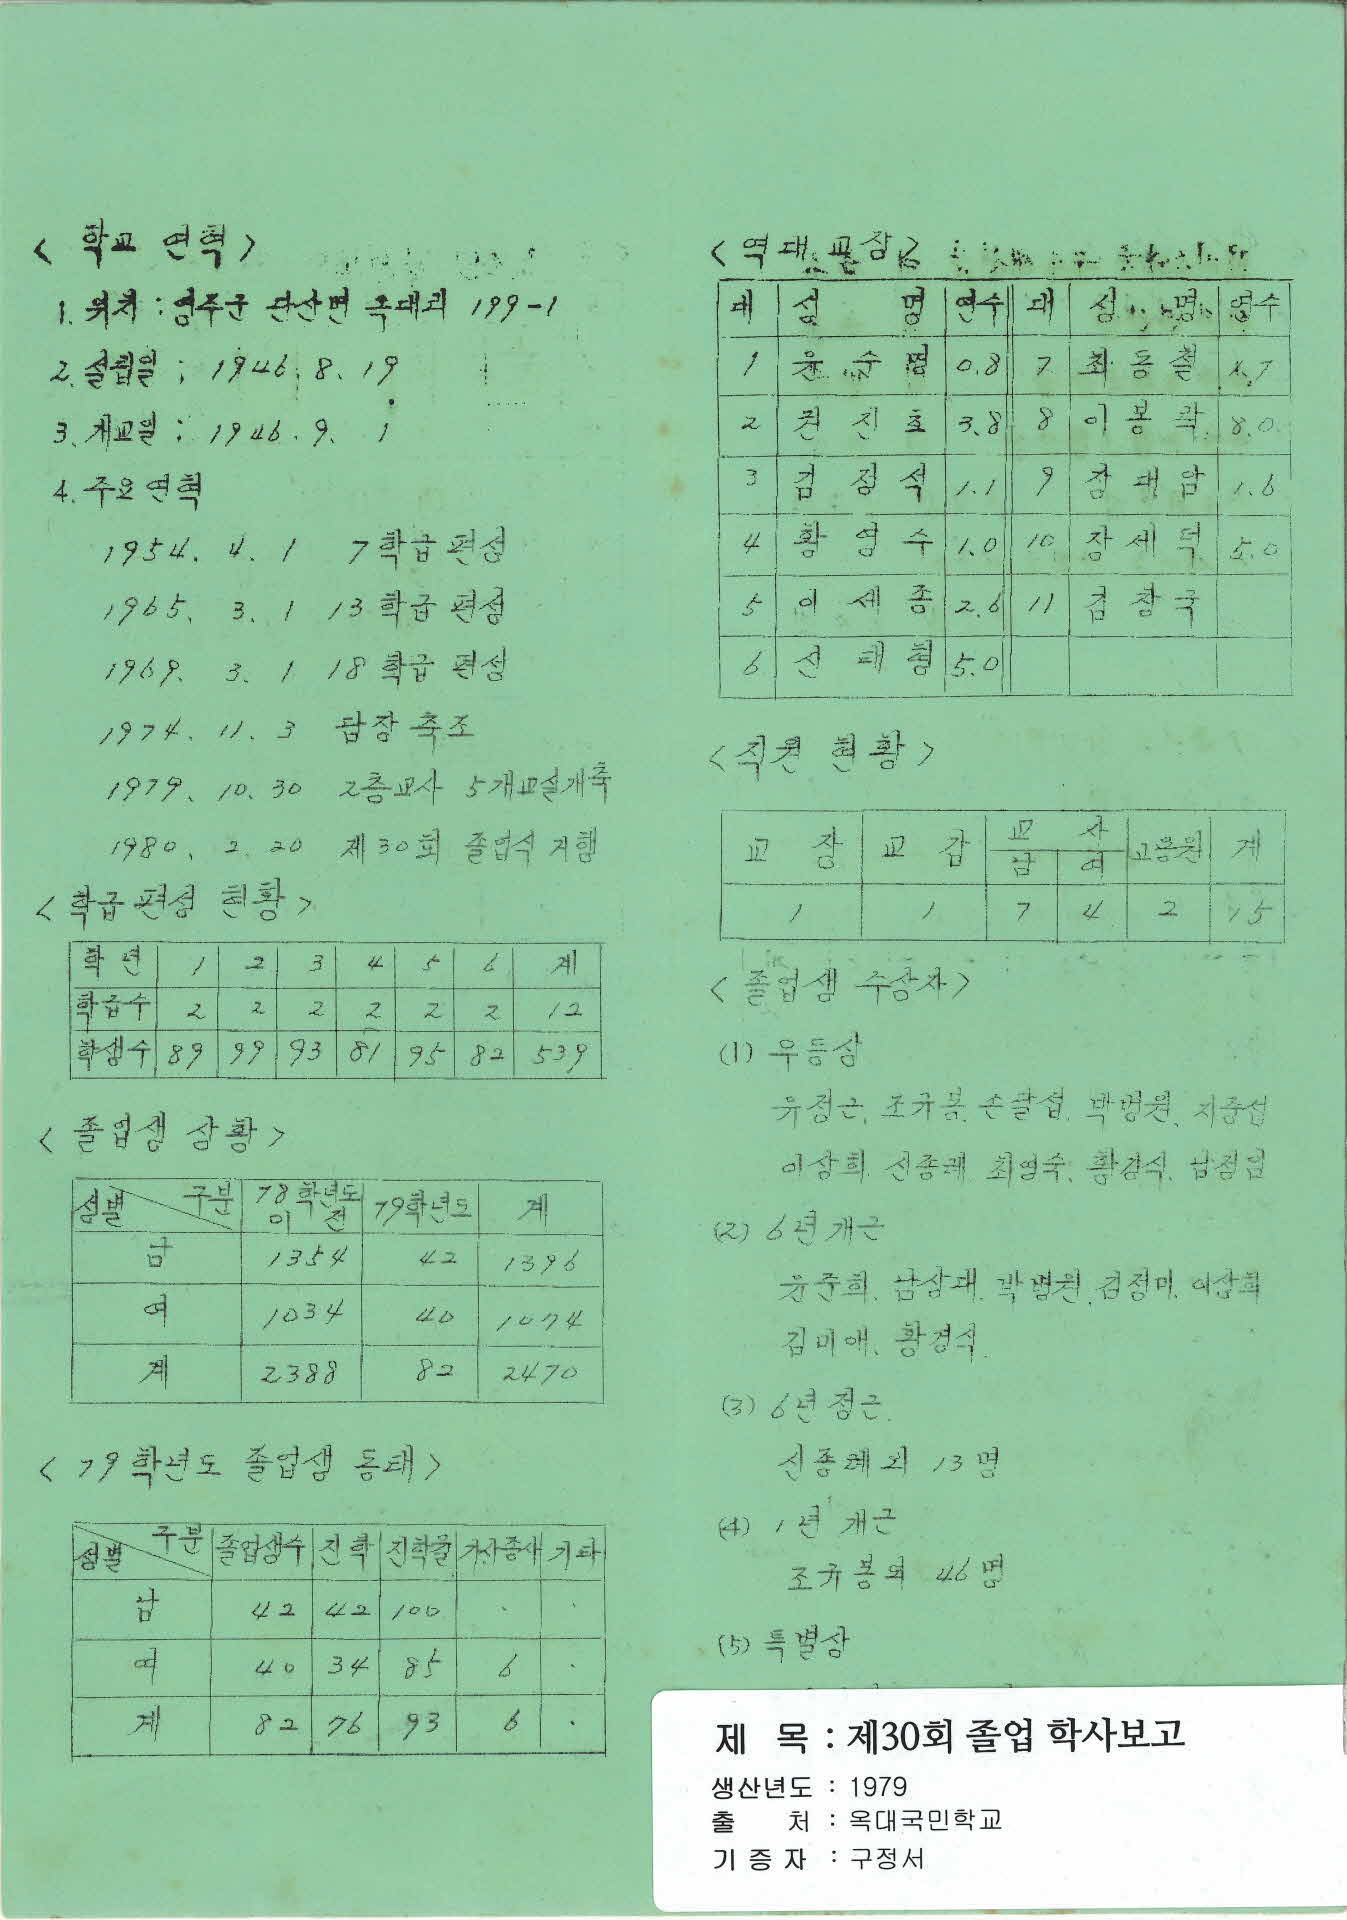 < 학교 연혁 >
1. 위치 : 영주군 단산면 옥대리 199-1
2. 설립일 : 1946. 8. 19
3. 개교일 : 1946. 9. 1
4. 주요연혁
1954. 4. 1 7학급 편성
1965. 3. 1 13학급 편성
1969. 3. 1 18학급 편성
1974. 11. 3 담장 축조
1979. 10. 30 2층교사 5개교실개축
1980. 2. 20 제30회 졸업식 거행
< 학급편성 현황 >
학년 1 2 3 4 5 6 계
학급수 2 2 2 2 2 2 12
학생수 89 99 93 81 95 82 539
< 졸업생 상황 >
성별 구분 78학년도 이전 79학년도 계
남 1354 42 1396
여 1034 40 1074
계 2388 82 2470
< 79학년도 졸업생 동태 >
성별 구분 졸업생수 진학 진학율 가사종사 기타
남 42 42 100 . .
여 40 34 85 6 .
계 82 76 93 6 .
< 역대 교장 >
대 성명 연수 대 성명 연수
1 윤수명 0.8 7 최동철
2 권진호 3.8 8 이봉락 8.0
3 김정석 1.1 9 장대암 1.6
4 황영수 1.0 10 장세덕 5.0
5 이세종 2.6 11 김창국
6 신태형 5.0
< 직원 현황 >
교장 교감 교사 고용원 계
남 여
1 1 7 4 2 15
< 졸업생 수상자 >
(1) 우등상
유정근, 조규봉, 손팔섭, 박병원, 지중섭
이상희, 신종례, 최영숙, 황경식, 남정임
(2) 6년개근
윤준희, 남상대, 박병원, 김정미, 이상희
김미애, 황경식
(3) 6년정근
신종례외 13명
(4) 1년 개근
조규봉외 46명
(5) 특별상
제 목 : 제30회 졸업 학사보고
생산년도 : 1979
출 처 : 옥대국민학교
기증자 : 구정서